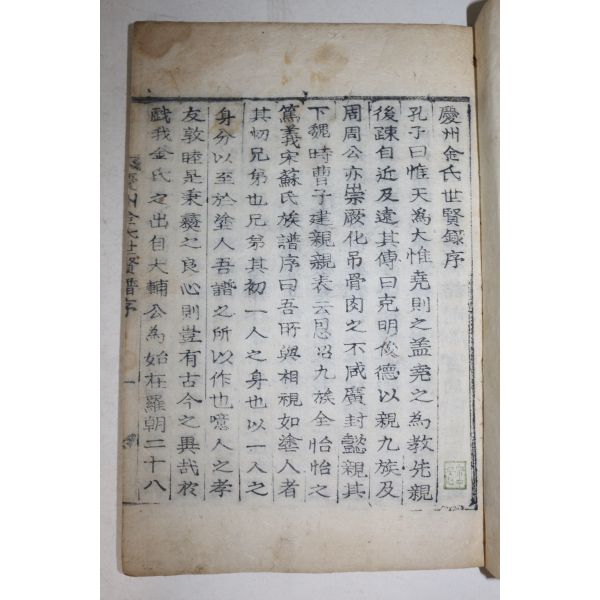 慶州金氏世賢錄序
孔子曰惟天為大惟堯則之盖堯之為教先親
後疎自近及遠其傳曰克明俊德以親九族及
周周公亦崇厥化吊骨肉之不咸廣封懿親其
下魏時曹子建親親表云恩昭九族全怡怡之
篤義宋蘇氏族譜序曰吾所與相視如塗人者
其初兄弟也兄弟其初一人之身也以一人之
身分以至於塗人吾譜之所以作也噫人之孝
友敦睦是秉彜之良心則豈有古今之異哉於
戱我金氏之出自大輔公為始在羅朝二十八
慶州金氏世賢譜序 一